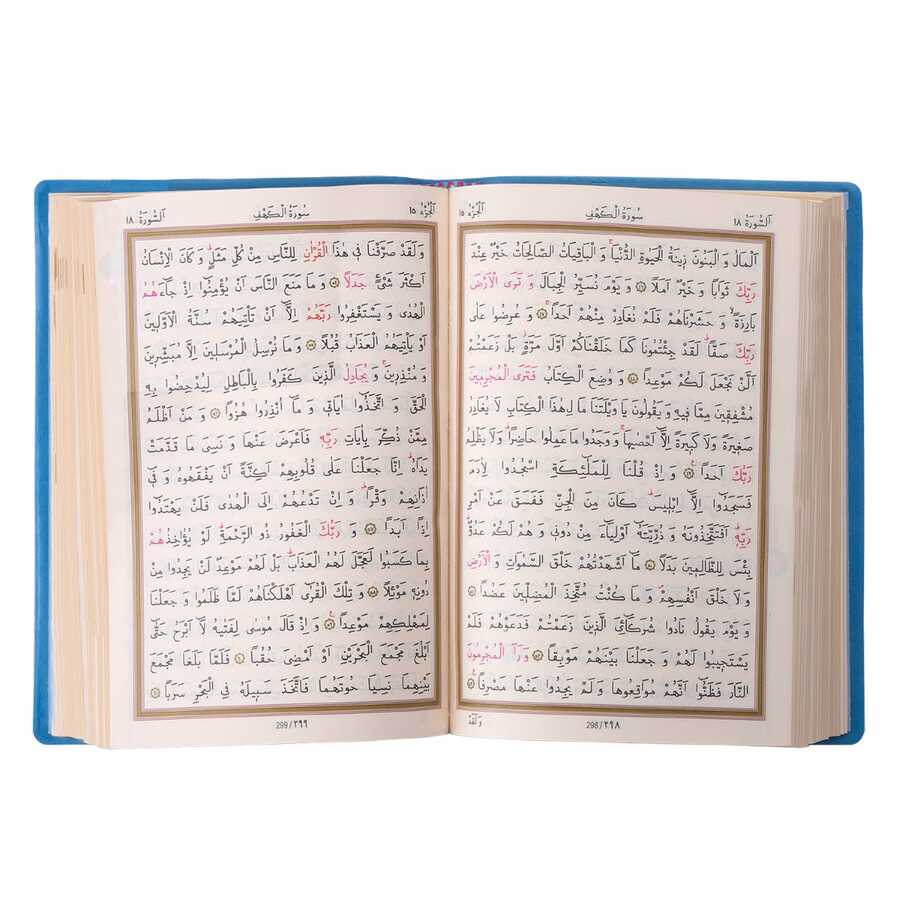 اَلسُّورَةُ ١٨ سُورَةُ الْكَهْفِ اَلْجُزْءُ ١٥
اَلْمَالُ وَ الْبَنُونَ زِينَةُ الْحَيٰوةِ الدُّنْيَاۚ وَ الْبَاقِيَاتُ الصَّالِحَاتُ خَيْرٌ عِنْدَ
رَبِّكَ ثَوَابًا وَ خَيْرٌ اَمَلًا ﴿٤٦﴾ وَ يَوْمَ نُسَيِّرُ الْجِبَالَ وَ تَرَى الْاَرْضَ
بَارِزَةًۙ وَ حَشَرْنَاهُمْ فَلَمْ نُغَادِرْ مِنْهُمْ اَحَدًاۚ ﴿٤٧﴾ وَ عُرِضُوا عَلٰى
رَبِّكَ صَفًّاۜ لَقَدْ جِئْتُمُونَا كَمَا خَلَقْنَاكُمْ اَوَّلَ مَرَّةٍۘ بَلْ زَعَمْتُمْ
اَلَّنْ نَجْعَلَ لَكُمْ مَوْعِدًا ﴿٤٨﴾ وَ وُضِعَ الْكِتَابُ فَتَرَى الْمُجْرِمِينَ
مُشْفِقِينَ مِمَّا فِيهِ وَ يَقُولُونَ يَا وَيْلَتَنَا مَا لِهٰذَا الْكِتَابِ لَا يُغَادِرُ
صَغِيرَةً وَ لَا كَبِيرَةً اِلَّٓا اَحْصٰيهَاۚ وَ وَجَدُوا مَا عَمِلُوا حَاضِرًاۜ وَ لَا يَظْلِمُ
رَبُّكَ اَحَدًا۟ ﴿٤٩﴾ وَ اِذْ قُلْنَا لِلْمَلٰٓئِكَةِ اسْجُدُوا لِاٰدَمَ
فَسَجَدُٓوا اِلَّٓا اِبْلِيسَۜ كَانَ مِنَ الْجِنِّ فَفَسَقَ عَنْ اَمْرِ
رَبِّهِۜ اَفَتَتَّخِذُونَهُ وَ ذُرِّيَّتَهُٓ اَوْلِيَٓاءَ مِنْ دُونِي وَ هُمْ لَكُمْ عَدُوٌّۜ
بِئْسَ لِلظَّالِمِينَ بَدَلًا ﴿٥٠﴾ مَٓا اَشْهَدْتُهُمْ خَلْقَ السَّمٰوَاتِ وَ الْاَرْضِ
وَ لَا خَلْقَ اَنْفُسِهِمْ وَ مَا كُنْتُ مُتَّخِذَ الْمُضِلِّينَ عَضُدًا ﴿٥١﴾
وَ يَوْمَ يَقُولُ نَادُوا شُرَكَٓائِيَ الَّذِينَ زَعَمْتُمْ فَدَعَوْهُمْ فَلَمْ
يَسْتَجِيبُوا لَهُمْ وَ جَعَلْنَا بَيْنَهُمْ مَوْبِقًا ﴿٥٢﴾ وَ رَاَ الْمُجْرِمُونَ
النَّارَ فَظَنُّٓوا اَنَّهُمْ مُوَاقِعُوهَا وَ لَمْ يَجِدُوا عَنْهَا مَصْرِفًا۟ ﴿٥٣﴾
298 / ٢٩٨
وَ لَقَدْ
اَلسُّورَةُ ١٨ سُورَةُ الْكَهْفِ اَلْجُزْءُ ١٥
وَ لَقَدْ صَرَّفْنَا فِي هٰذَا الْقُرْاٰنِ لِلنَّاسِ مِنْ كُلِّ مَثَلٍۜ وَ كَانَ الْاِنْسَانُ
اَكْثَرَ شَيْءٍ جَدَلًا ﴿٥٤﴾ وَ مَا مَنَعَ النَّاسَ اَنْ يُؤْمِنُٓوا اِذْ جَٓاءَهُمُ
الْهُدٰى وَ يَسْتَغْفِرُوا رَبَّهُمْ اِلَّٓا اَنْ تَأْتِيَهُمْ سُنَّةُ الْاَوَّلِينَ
اَوْ يَأْتِيَهُمُ الْعَذَابُ قُبُلًا ﴿٥٥﴾ وَ مَا نُرْسِلُ الْمُرْسَلِينَ اِلَّا مُبَشِّرِينَ
وَ مُنْذِرِينَۚ وَ يُجَادِلُ الَّذِينَ كَفَرُوا بِالْبَاطِلِ لِيُدْحِضُوا بِهِ
الْحَقَّ وَ اتَّخَذُٓوا اٰيَاتِي وَ مَٓا اُنْذِرُوا هُزُوًا ﴿٥٦﴾ وَ مَنْ اَظْلَمُ
مِمَّنْ ذُكِّرَ بِاٰيَاتِ رَبِّهِ فَاَعْرَضَ عَنْهَا وَ نَسِيَ مَا قَدَّمَتْ
يَدَاهُۜ اِنَّا جَعَلْنَا عَلٰى قُلُوبِهِمْ اَكِنَّةً اَنْ يَفْقَهُوهُ وَ فِٓي
اٰذَانِهِمْ وَقْرًاۜ وَ اِنْ تَدْعُهُمْ اِلَى الْهُدٰى فَلَنْ يَهْتَدُٓوا
اِذًا اَبَدًا ﴿٥٧﴾ وَ رَبُّكَ الْغَفُورُ ذُو الرَّحْمَةِۜ لَوْ يُؤَاخِذُهُمْ
بِمَا كَسَبُوا لَعَجَّلَ لَهُمُ الْعَذَابَۜ بَلْ لَهُمْ مَوْعِدٌ لَنْ يَجِدُوا مِنْ
دُونِهِ مَوْئِلًا ﴿٥٨﴾ وَ تِلْكَ الْقُرٰٓى اَهْلَكْنَاهُمْ لَمَّا ظَلَمُوا وَ جَعَلْنَا
لِمَهْلِكِهِمْ مَوْعِدًا۟ ﴿٥٩﴾ وَ اِذْ قَالَ مُوسٰى لِفَتٰيهُ لَٓا اَبْرَحُ حَتّٰٓى
اَبْلُغَ مَجْمَعَ الْبَحْرَيْنِ اَوْ اَمْضِيَ حُقُبًا ﴿٦٠﴾ فَلَمَّا بَلَغَا مَجْمَعَ
بَيْنِهِمَا نَسِيَا حُوتَهُمَا فَاتَّخَذَ سَبِيلَهُ فِي الْبَحْرِ سَرَبًا ﴿٦١﴾
299 / ٢٩٩